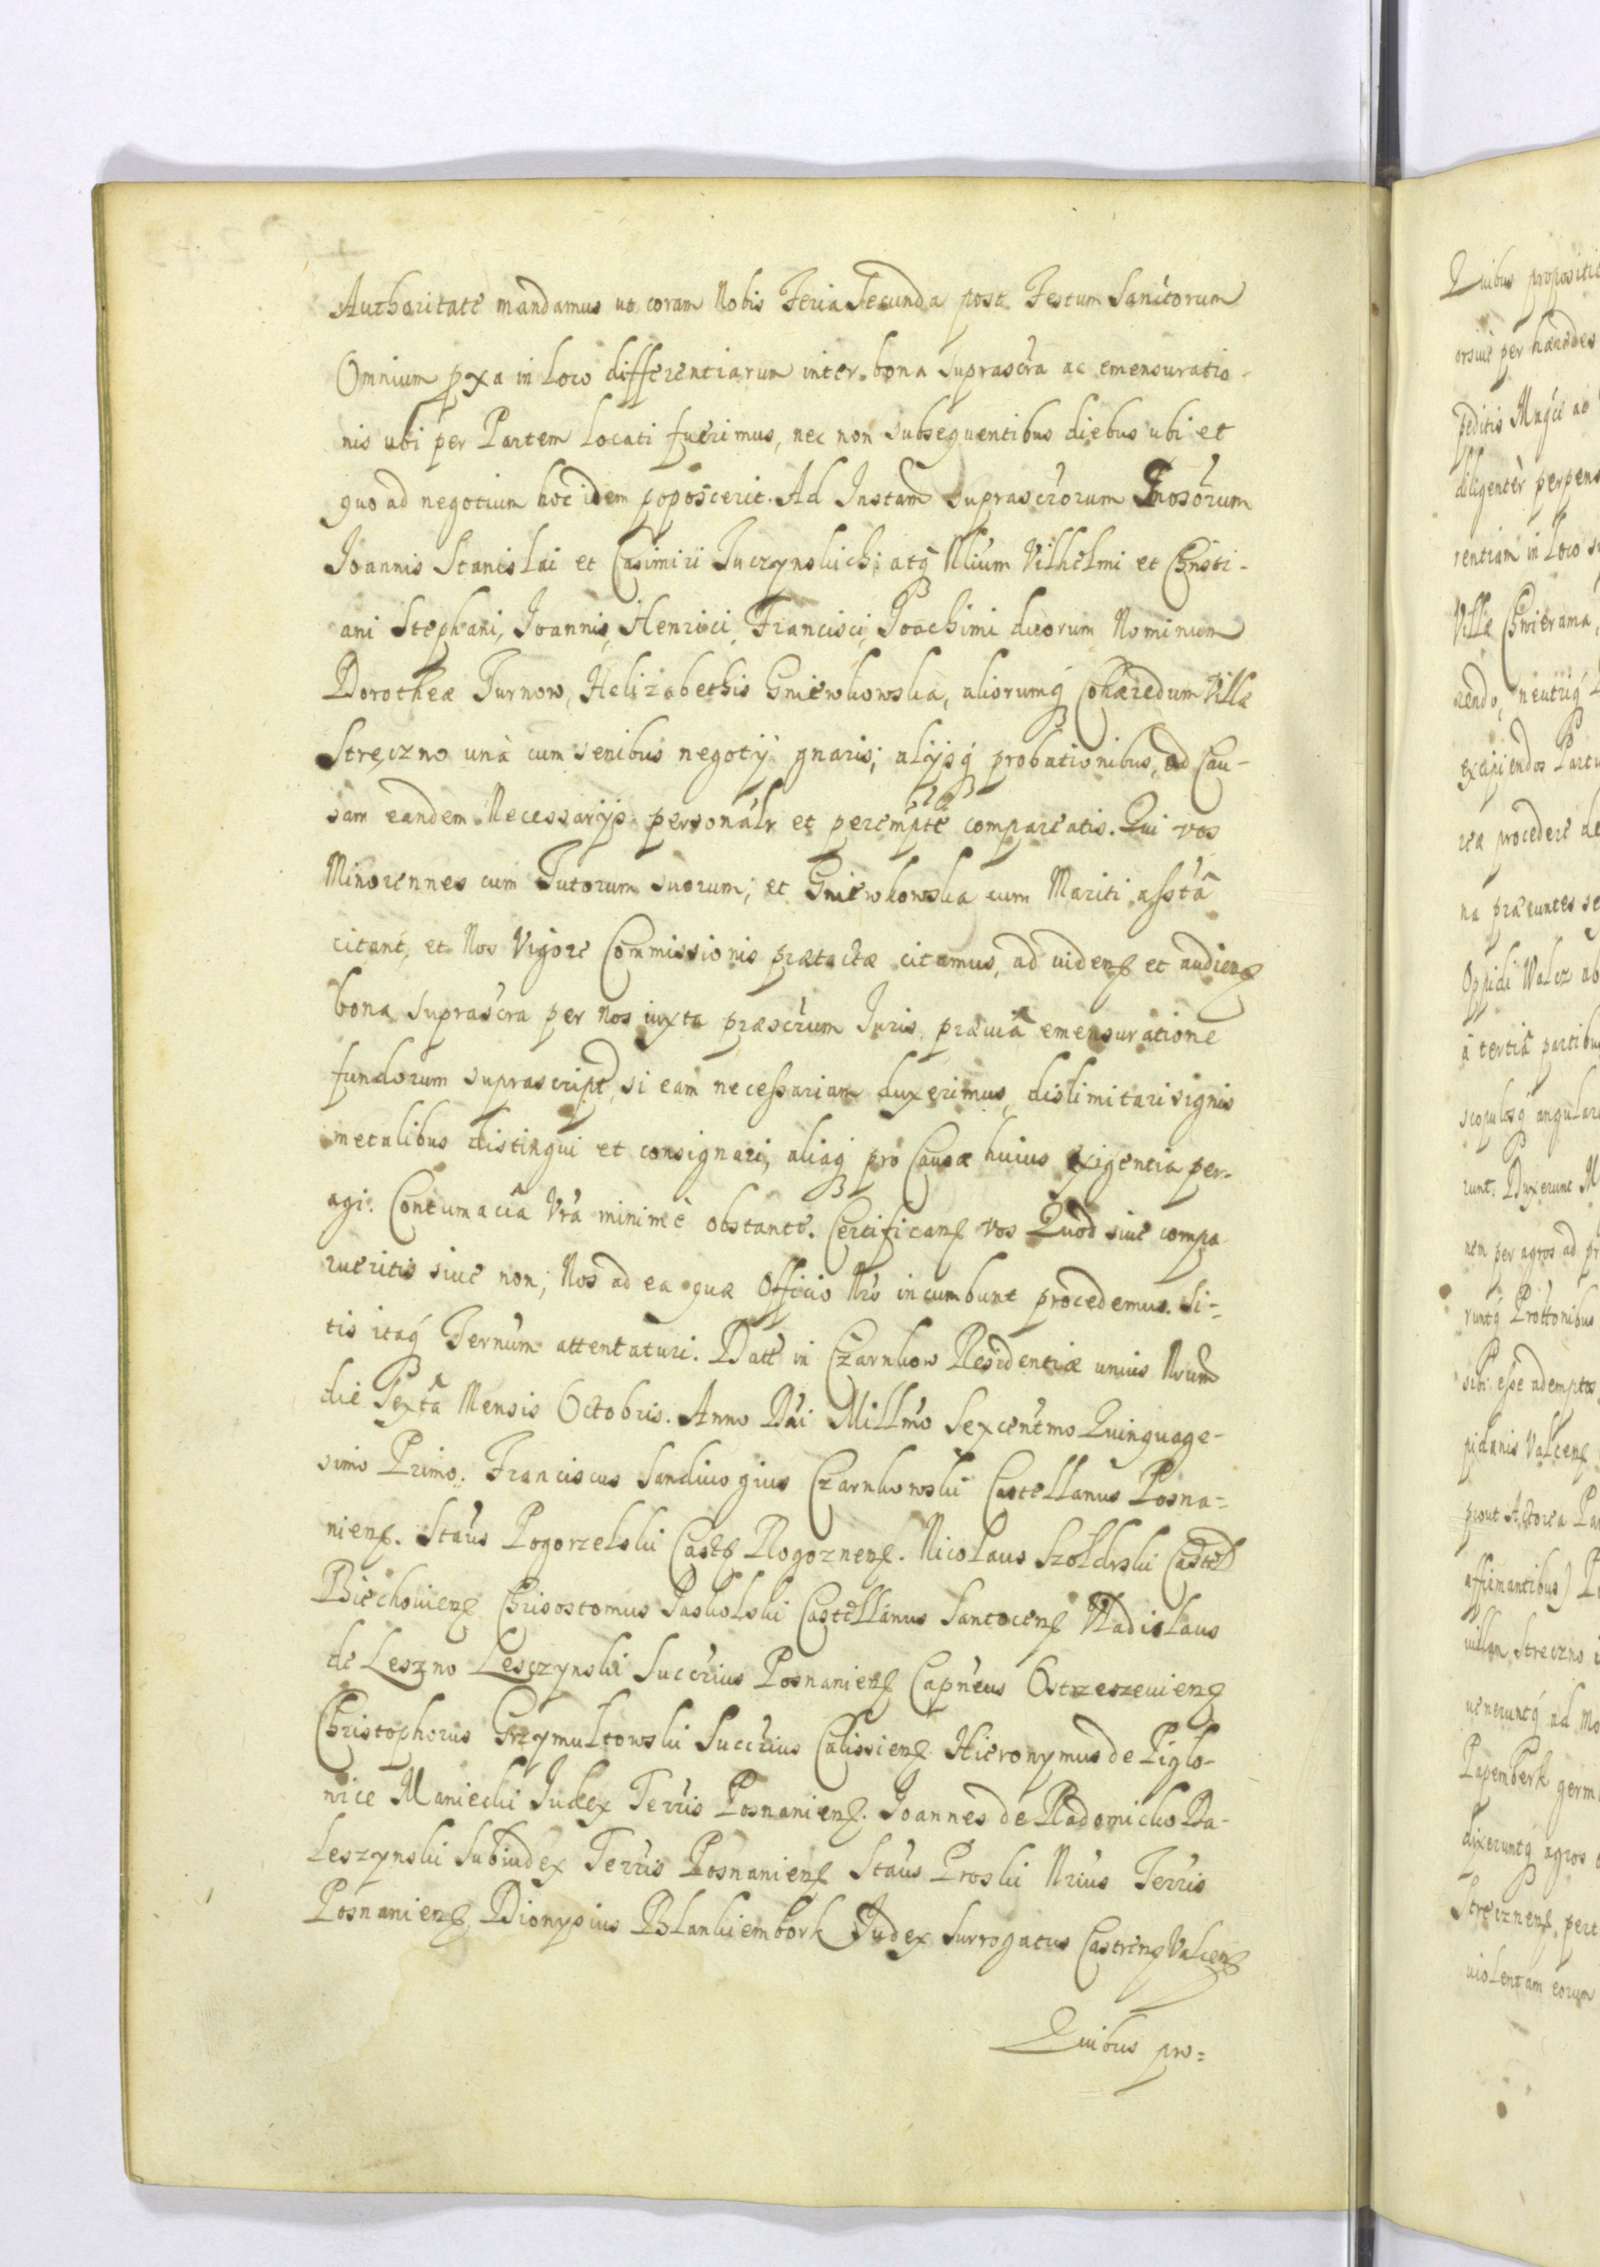 Authoritate mandamus ut coram Nobis Feria Secunda post Festum Sanctorum
Omnium pxa in Loco differentiarum inter bona suprascra ac emensuratio-
nis ubi per Partem Locati fuerimus, nec non subsequentibus diebus ubi et
quo ad negotium hoc idem poposcerit. Ad Instam suprascrorum Gnosorum
Joannis Stanislai et Casimiri Tuczynskich; atq Nlium Vilhelmi et Christi-
ani Stephani, Joannis, Henrici, Francisci, Joachimi duorum Nominum
Dorotheæ Turnow, Helizabethis Gniewkowska, aliorumq Cohæredum Villæ
Stręczno unà cum senibus negotij gnaris; alijsq probationibus, ad Cau-
sam eandem Necessarijs personalr et perempte compareatis. Qui vos
Minorennes cum Tutorum suorum; et Gniewkowska cum Mariti asstâ
citant, et Nos Vigore Commissionis prætactæ citamus, ad videnꝭ et audienꝭ
bona suprascra per Nos iuxta præscrum Juris præviâ emensuratione
fundorum suprascript, si eam necessariam duxerimus, dislimitari signis
metalibus distingui et consignari, aliaq pro Causæ huius exigentia per-
agi. Contumaciâ Vrâ minimè obstante. Certificanꝭ vos Quod sive compa
rueritis sive non; Nos ad ea quæ Officio Nro incumbunt procedemus. Si-
tis itaq Ternum attentaturi. Datt in Czarnkow Residentiæ unius Nrum
die Sextâ Mensis Octobris. Anno Dni Millmo Sexcentmo Quinquage-
simo Primo. Franciscus Sandivogius Czarnkowski Castellanus Posna=
nienꝭ. Staus Pogorzelski Castꝭ Rogoznenꝭ. Nicolaus Szoldrski Castell
Biechovienꝭ Chrisostomus Jaskolski Castellanus Santocenꝭ Vladislaus
de Leszno Lesczynski Succrius Posnanienꝭ Capneus Ostrzeszevienꝭ
Christophorus Grzymultowski Succrius Calissienꝭ Hieronymus de Piglo-
wice Maniecki Judex Terris Posnanienꝭ. Joannes de Radomicko Da-
leszynski Subiudex Terris Posnanienꝭ Staus Proski Nrius Terris
Posnanienꝭ Dionysius Blankiembork Judex Surrogatus Castrenꝭ Valcenꝭ
Quibus pro=
Quibus
orsive per hæredes
diligentèr perpens
rentiam in Loco
excipiendos
procedere
Oppidi Walcz ab
à tertiâ partibus
runt. Duxerunt
nem per agros ad
sibi esse adempta
prout Actorea
affirmantibus)
villam Stręczno
Papemberk germ
dixeruntq agros
Strecznenꝭ
violentam eorum